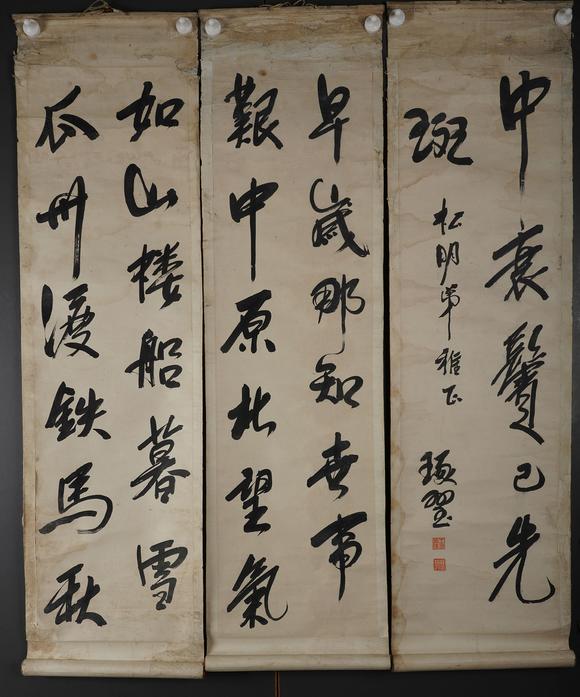 中衰鬢已先
斑
松明弟雅正
早歲那知世事
艱中原北望氣
如山楼船暮雪
瓜州渡鉄馬秋